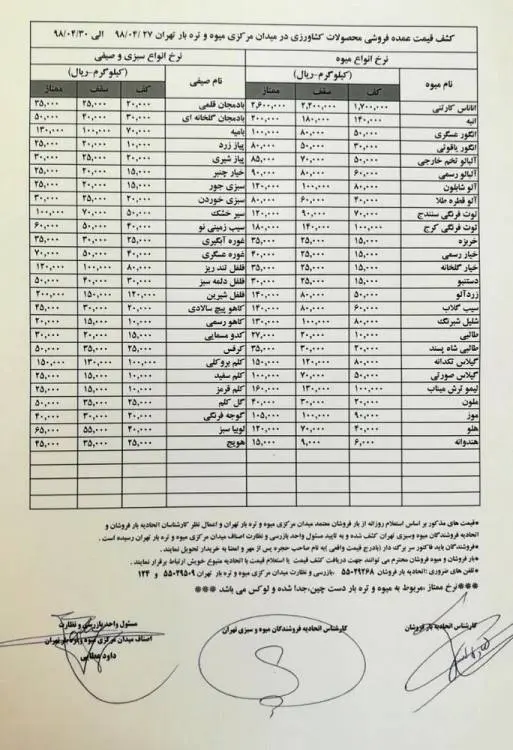 کشف قیمت عمده فروشی محصولات کشاورزی در میدان مرکزی میوه و تره بار تهران ۹۸/۰۴/۲۷ الی ۹۸/۰۴/۳۰
نرخ انواع میوه نرخ انواع سبزی و صیفی
نام میوه (کیلوگرم-ریال) نام صیفی (کیلوگرم-ریال)
کف سقف ممتاز کف سقف ممتاز
آناناس کارتنی ۱,۷۰۰,۰۰۰ ۲,۲۰۰,۰۰۰ ۲,۶۰۰,۰۰۰ بادمجان قلمی ۲۰,۰۰۰ ۲۵,۰۰۰ ۳۵,۰۰۰
انبه ۱۴۰,۰۰۰ ۱۸۰,۰۰۰ ۲۰۰,۰۰۰ بادمجان گلخانه ای ۳۰,۰۰۰ ۴۰,۰۰۰ ۵۰,۰۰۰
انگور عسگری ۵۰,۰۰۰ ۸۰,۰۰۰ ۱۰۰,۰۰۰ بامیه ۷۰,۰۰۰ ۱۰۰,۰۰۰ ۱۳۰,۰۰۰
انگور یاقوتی ۳۰,۰۰۰ ۵۰,۰۰۰ ۸۰,۰۰۰ پیاز زرد ۱۰,۰۰۰ ۲۰,۰۰۰ ۲۵,۰۰۰
آلبالو تخم خارجی ۵۰,۰۰۰ ۷۰,۰۰۰ ۸۵,۰۰۰ پیاز شیری ۲۰,۰۰۰ ۲۵,۰۰۰ ۳۰,۰۰۰
آلبالو رسمی ۶۰,۰۰۰ ۸۰,۰۰۰ ۹۰,۰۰۰ خیار چنبر ۱۵,۰۰۰ ۲۰,۰۰۰ ۲۵,۰۰۰
آلو شابلون ۸۰,۰۰۰ ۱۰۰,۰۰۰ ۱۲۰,۰۰۰ سبزی جور ۱۵,۰۰۰ ۲۰,۰۰۰ ۲۵,۰۰۰
آلو قطره طلا ۴۰,۰۰۰ ۶۰,۰۰۰ ۸۰,۰۰۰ سبزی خوردن ۲۰,۰۰۰ ۲۵,۰۰۰ ۳۰,۰۰۰
توت فرنگی سنندج ۷۰,۰۰۰ ۹۰,۰۰۰ ۱۲۰,۰۰۰ سیر خشک ۵۰,۰۰۰ ۷۰,۰۰۰ ۱۰۰,۰۰۰
توت فرنگی کرج ۱۰۰,۰۰۰ ۱۴۰,۰۰۰ ۱۸۰,۰۰۰ سیب زمینی نو ۴۰,۰۰۰ ۵۰,۰۰۰ ۶۰,۰۰۰
خربزه ۱۵,۰۰۰ ۲۵,۰۰۰ ۳۵,۰۰۰ غوره آبگیری ۲۵,۰۰۰ ۳۰,۰۰۰ ۳۵,۰۰۰
خیار رسمی ۱۵,۰۰۰ ۲۵,۰۰۰ ۴۰,۰۰۰ غوره عسگری ۴۰,۰۰۰ ۵۰,۰۰۰ ۷۰,۰۰۰
خیار گلخانه ۱۵,۰۰۰ ۲۵,۰۰۰ ۳۵,۰۰۰ فلفل تند ریز ۸۰,۰۰۰ ۱۰۰,۰۰۰ ۱۲۰,۰۰۰
دستنبو ۱۵,۰۰۰ ۲۵,۰۰۰ ۳۰,۰۰۰ فلفل دلمه سبز ۳۰,۰۰۰ ۴۰,۰۰۰ ۵۰,۰۰۰
زردآلو ۵۰,۰۰۰ ۸۰,۰۰۰ ۱۴۰,۰۰۰ فلفل شیرین ۱۲۰,۰۰۰ ۱۵۰,۰۰۰ ۲۰۰,۰۰۰
سیب گلاب ۶۰,۰۰۰ ۸۰,۰۰۰ ۱۴۰,۰۰۰ کاهو پیچ سالادی ۲۰,۰۰۰ ۳۰,۰۰۰ ۴۵,۰۰۰
شلیل شبرنگ ۸۰,۰۰۰ ۱۰۰,۰۰۰ ۱۳۰,۰۰۰ کاهو رسمی ۱۰,۰۰۰ ۱۵,۰۰۰ ۲۰,۰۰۰
طالبی ۱۰,۰۰۰ ۲۰,۰۰۰ ۲۷,۰۰۰ کدو مسمایی ۱۵,۰۰۰ ۲۰,۰۰۰ ۳۰,۰۰۰
طالبی شاه پسند ۲۰,۰۰۰ ۳۰,۰۰۰ ۳۵,۰۰۰ کرفس ۲۵,۰۰۰ ۳۵,۰۰۰ ۵۰,۰۰۰
گیلاس تکدانه ۸۰,۰۰۰ ۱۲۰,۰۰۰ ۱۵۰,۰۰۰ کلم بروکلی ۱۰۰,۰۰۰ ۱۳۰,۰۰۰ ۱۵۰,۰۰۰
گیلاس صورتی ۵۰,۰۰۰ ۷۰,۰۰۰ ۱۰۰,۰۰۰ کلم سفید ۱۰,۰۰۰ ۱۵,۰۰۰ ۲۵,۰۰۰
لیمو ترش میناب ۱۰۰,۰۰۰ ۱۳۰,۰۰۰ ۱۶۰,۰۰۰ کلم قرمز ۱۰,۰۰۰ ۱۵,۰۰۰ ۲۵,۰۰۰
ملون ۲۰,۰۰۰ ۳۰,۰۰۰ ۴۰,۰۰۰ گل کلم ۲۵,۰۰۰ ۳۵,۰۰۰ ۵۰,۰۰۰
موز ۹۰,۰۰۰ ۱۰۰,۰۰۰ ۱۰۵,۰۰۰ گوجه فرنگی ۲۰,۰۰۰ ۳۰,۰۰۰ ۴۰,۰۰۰
هلو ۴۰,۰۰۰ ۷۰,۰۰۰ ۱۲۰,۰۰۰ لوبیا سبز ۴۰,۰۰۰ ۵۵,۰۰۰ ۶۵,۰۰۰
هندوانه ۶,۰۰۰ ۹,۰۰۰ ۱۵,۰۰۰ هویج ۲۵,۰۰۰ ۳۵,۰۰۰ ۴۵,۰۰۰
*قیمت های مذکور بر اساس استعلام روزانه از بار فروشان معتمد میدان مرکزی میوه و تره بار تهران و اعمال نظر کارشناسان اتحادیه بار فروشان و
اتحادیه فروشندگان میوه وسبزی تهران کشف شده و به تایید مسئول واحد بازرسی و نظارت اصناف میدان مرکزی میوه و تره بار تهران رسیده است .
*فروشندگان باید فاکتور سر برگ دار (بادرج قیمت واقعی )به نام صاحب حجره پس از مهر و امضا به خریدار تحویل نمایند.
*بار فروشان و میوه فروشان محترم می توانند جهت دریافت کشف قیمت یا استعلام قیمت با اتحادیه متبوع خویش ارتباط برقرار نمایند .
*تلفن های ضروری :اتحادیه بار فروشان ۵۵۰۴۹۲۶۸ .بازرسی و نظارت میدان مرکزی میوه و تره بار تهران ۵۵۰۲۹۵۰۹ و ۱۲۴
***نرخ ممتاز ,مربوط به میوه و تره بار دست چین,جدا شده و لوکس می باشد ***
کارشناس اتحادیه بار فروشان
کارشناس اتحادیه فروشندگان میوه و سبزی تهران
مسئول واحد بازرسی و نظارت
اصناف میدان مرکزی میوه و تره بار تهران
داود عطایی